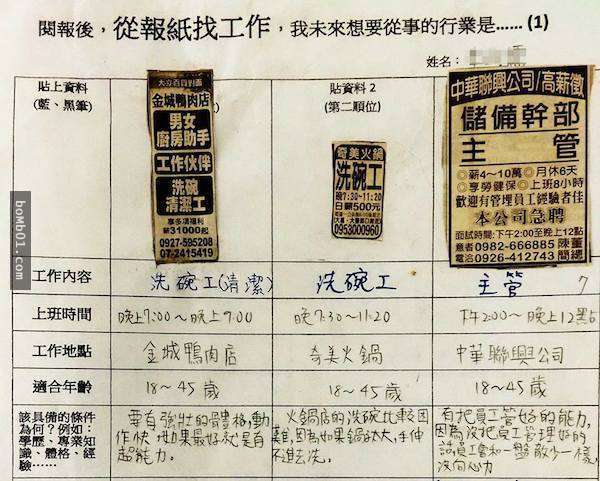 閱報後，從報紙找工作，我未來想要從事的行業是......(1)
姓名：
貼上資料
(藍、黑筆)
大立百貨對面
金城鴨肉店
男女
廚房助手
工作伙伴
洗碗
清潔工
享多項福利
薪31000起
0927-595208
07-2415419
貼資料2
(第二順位)
奇美火鍋
洗碗工
晚7:30~11:20
日薪500元
0953000960
中華聯興公司/高薪徵
儲備幹部
主管
◎薪4~10萬◎月休6天
◎享勞健保◎上班8小時
歡迎有管理員工經驗者佳
本公司急聘
面試時間:下午2:00至晚上12點
意者0982-666885陳董
電洽0926-412743簡總
工作內容
洗碗工(清潔)
洗碗工
主管
7
上班時間
晚上7:00~晚上9:00
晚7:30~11:20
下午2:00~晚上12點
工作地點
金城鴨肉店
奇美火鍋
中華聯興公司
適合年齡
18~45歲
18~45歲
18~45歲
該具備的條件
為何？例如：
學歷、專業知
識、體格、經
驗……
要有強壯的骨骼,動
作快,如果最好就是有
超能力。
火鍋店的洗碗比較困
難,因為如果鍋太大,手伸
不進去洗。
有把員工管好的能力,
因為沒把員工管理好的
話員工會和一盤散沙一樣,
沒向心力
boMb01.com